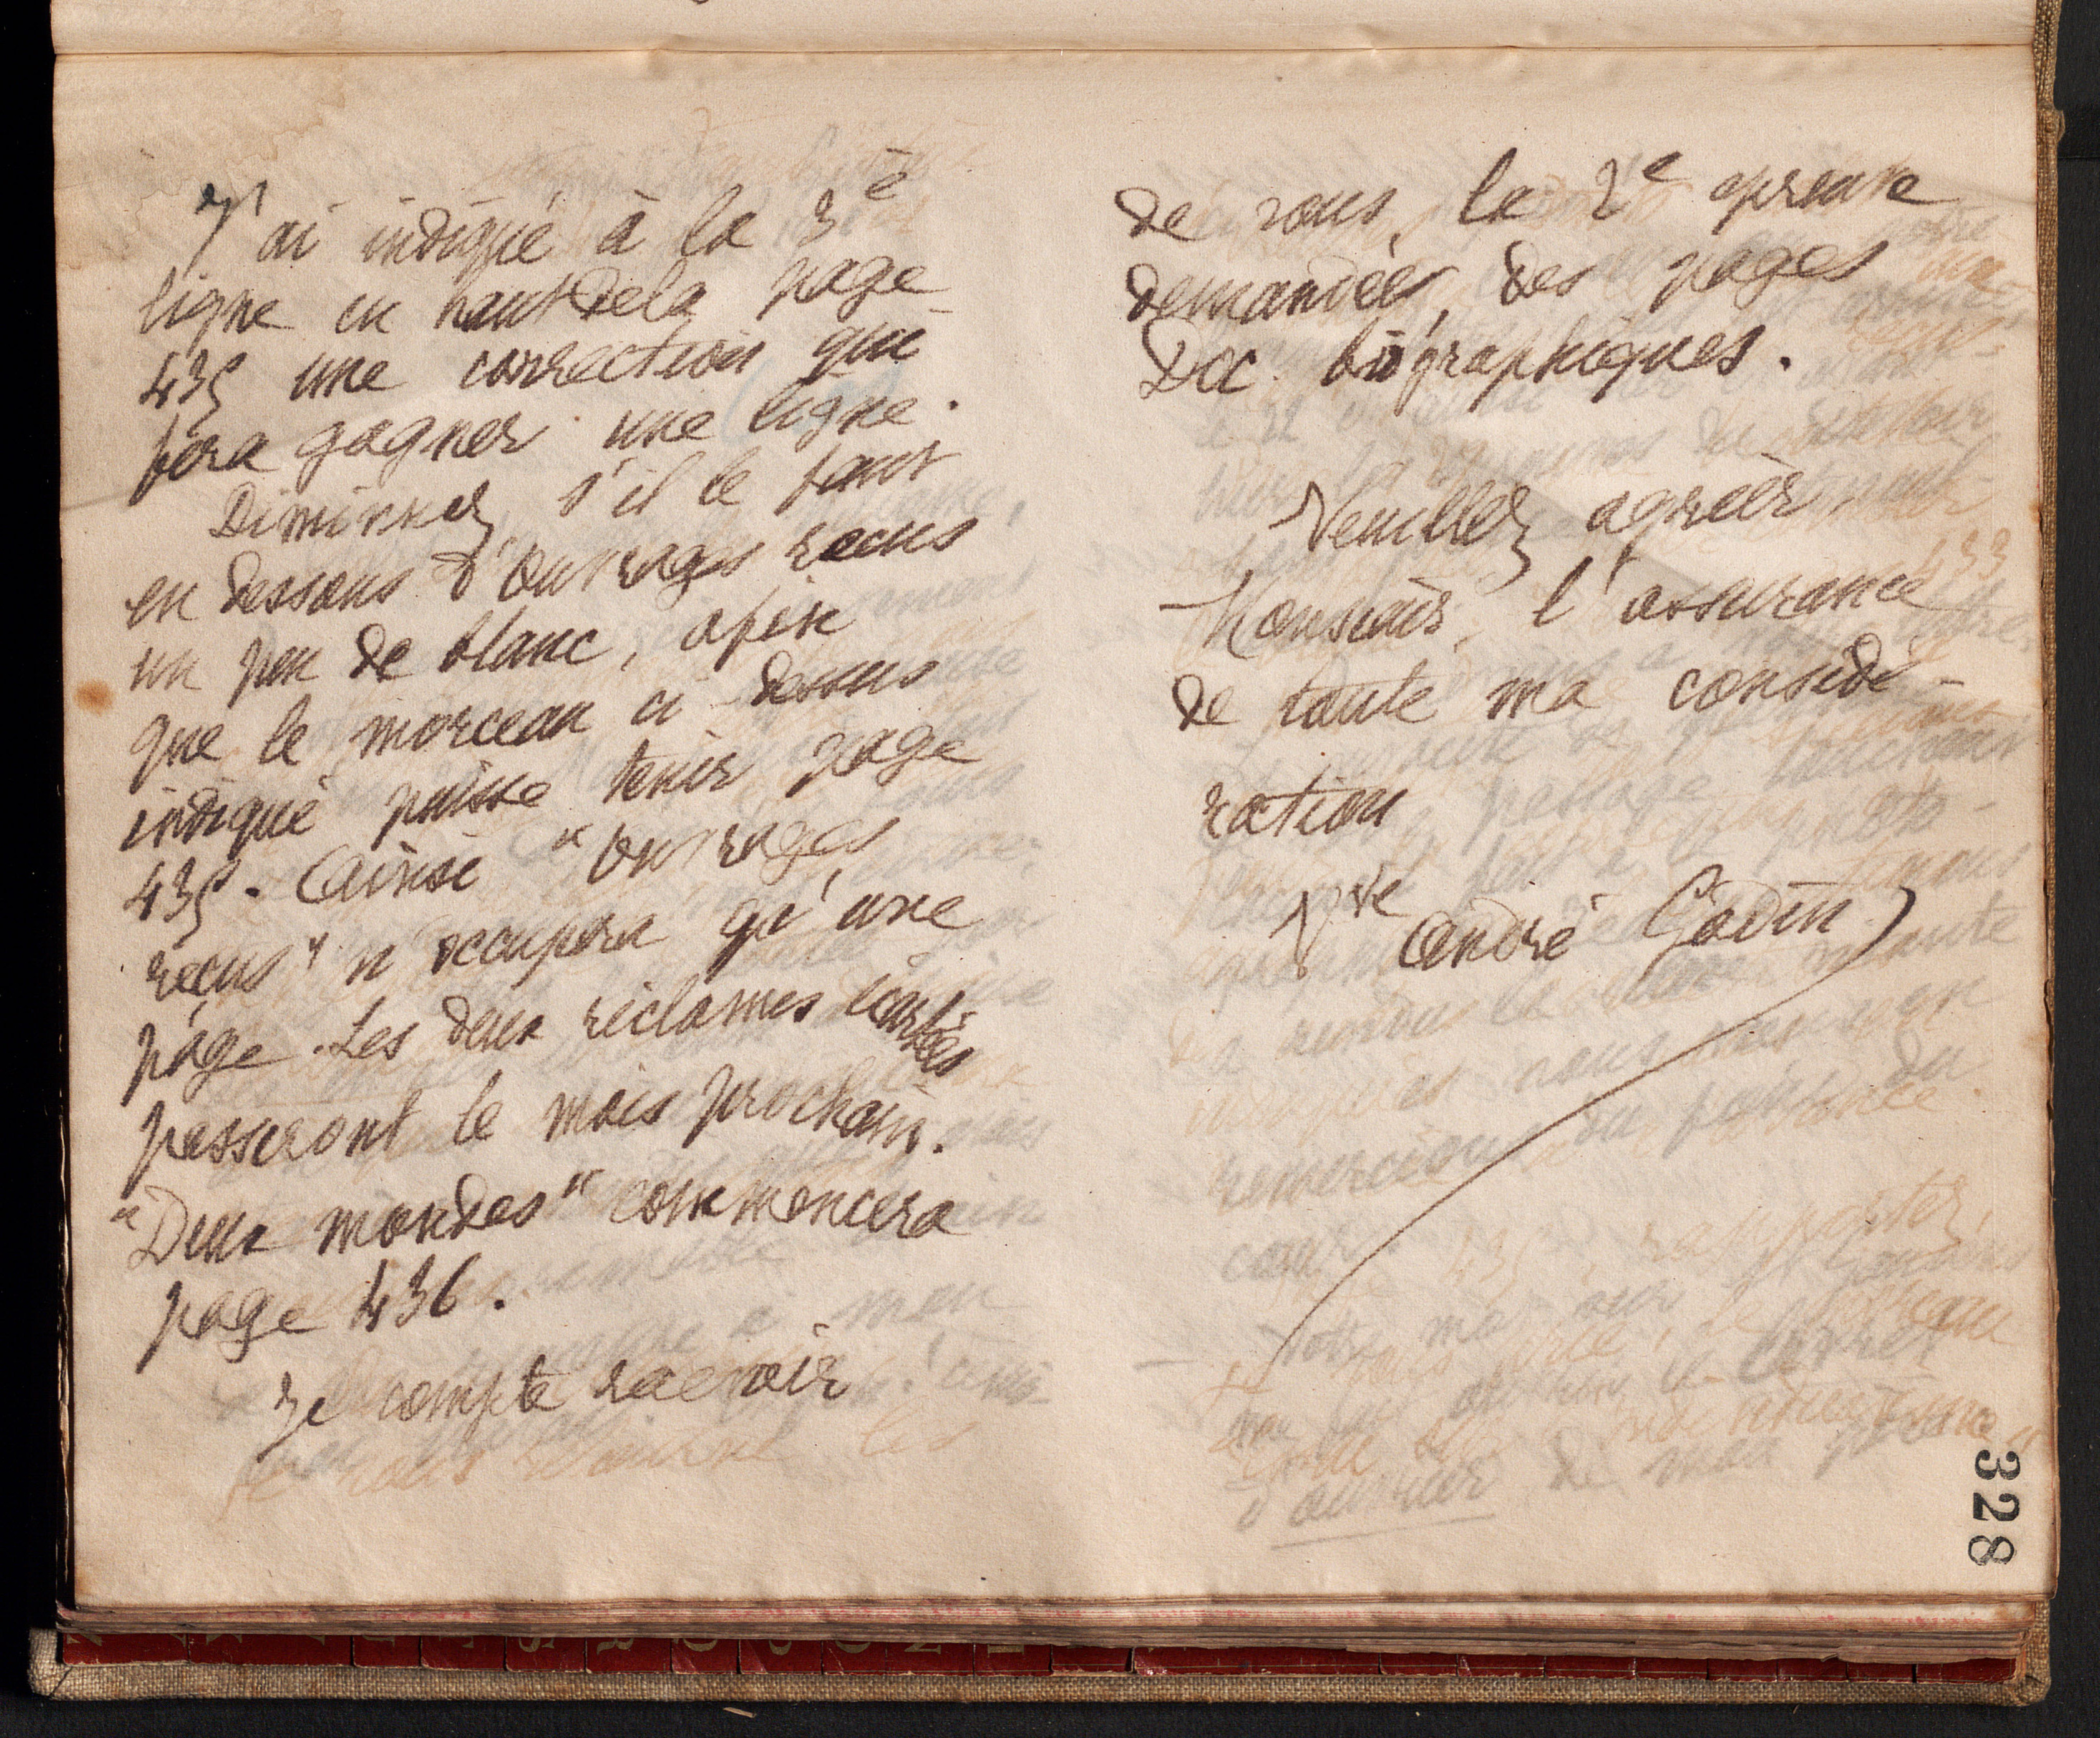 J'ai indiqué à la 3e
ligne en haut de la page
435 une correction qui
fera gagner une ligne.
Diminuez, s'il le faut
en dessous d'ouvrages recus
un peu de blanc, afin
que le morceau ci-dessus
indiqué puisse tenir page
435. Ainsi "Ouvrages
reçus" n'occupera qu'une
page. Les deux réclames
passeront le mois prochain.
"Deux mondes" commencera
page 436.
Je compte recevoir
de vous, la 2e épreuve
demandée, des pages
Doc. biographiques.
Veuillez agréer,
Monsieur, l'assurance
de toute ma considé-
ration
Vve André Godin
328